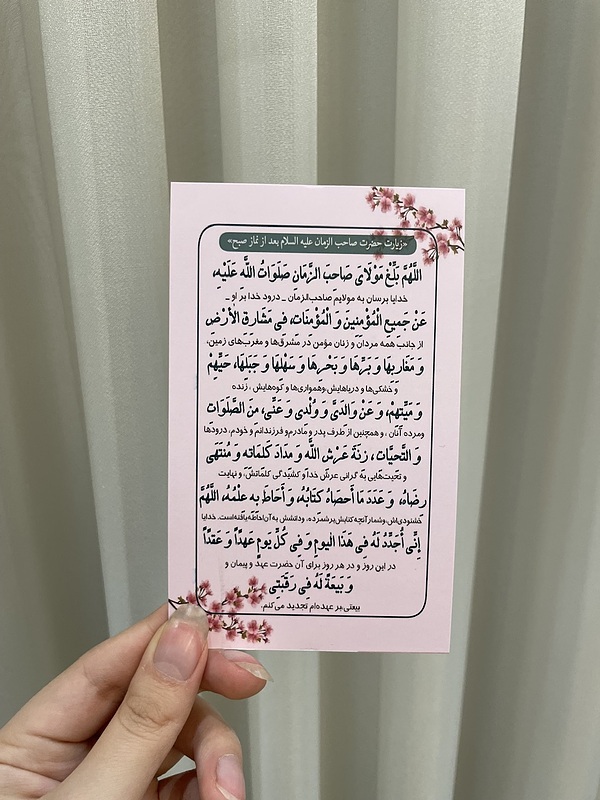 «زیارت حضرت صاحب الزمان علیه السلام بعد از نماز صبح»
اَللّهُمَّ بَلِّغْ مَوْلَایَ صَاحِبَ الزَّمَانِ صَلَوَاتُ اللَّهِ عَلَیْهِ،
خدایا برسان به مولایم صاحب‌الزمان _ درود خدا بر او _
عَنْ جَمِیعِ الْمُؤْمِنِینَ وَ الْمُؤْمِنَاتِ، فِی مَشَارِقِ الْأَرْضِ
از جانب همه مردان و زنان مؤمن در مشرق‌ها و مغرب‌های زمین،
وَ مَغَارِبِهَا وَ بَرِّهَا وَ بَحْرِهَا وَ سَهْلِهَا وَ جَبَلِهَا، حَیِّهِمْ
و خشکی‌ها و دریاهایش،وهمواری‌ها و کوه‌هایش ، زنده
وَ مَیِّتِهِمْ، وَ عَنْ وَالِدَیَّ وَ وُلْدِی وَ عَنِّی، مِنَ الصَّلَوَاتِ
ومرده آنان ، و همچنین از طرف پدر و مادرم‌و فرزندانم و خودم، درودها
وَ التَّحِیَّاتِ ، زِنَةَ عَرْشِ اللَّهِ وَ مِدَادَ کَلِمَاتِهِ وَ مُنْتَهَی
و تحیت‌هایی به گرانی عرش خدا‌و کشیدگی کلماتش، و نهایت
رِضَاهُ، وَ عَدَدَ مَا أَحصَاهُ کِتَابُهُ، وَ أَحَاطَ بِهِ عِلْمُهُ، اَللّهُمَّ
خشنودی‌اش،وشمارآنچه‌کتابش‌برشمرده، ودانشش به‌آن‌احاطه‌یافته‌است. خدایا
إِنِّی أُجَدِّدُ لَهُ فِی هَذَا الْیَومِ وَ فِی کُلِّ یَومٍ عَهْداً وَ عَقْداً
در این روز و در هر روز برای آن حضرت عهد و پیمان و
وَ بَیعَةً لَهُ فِی رَقَبَتِی
بیعتی‌بر عهده‌ام تجدید می‌کنم.